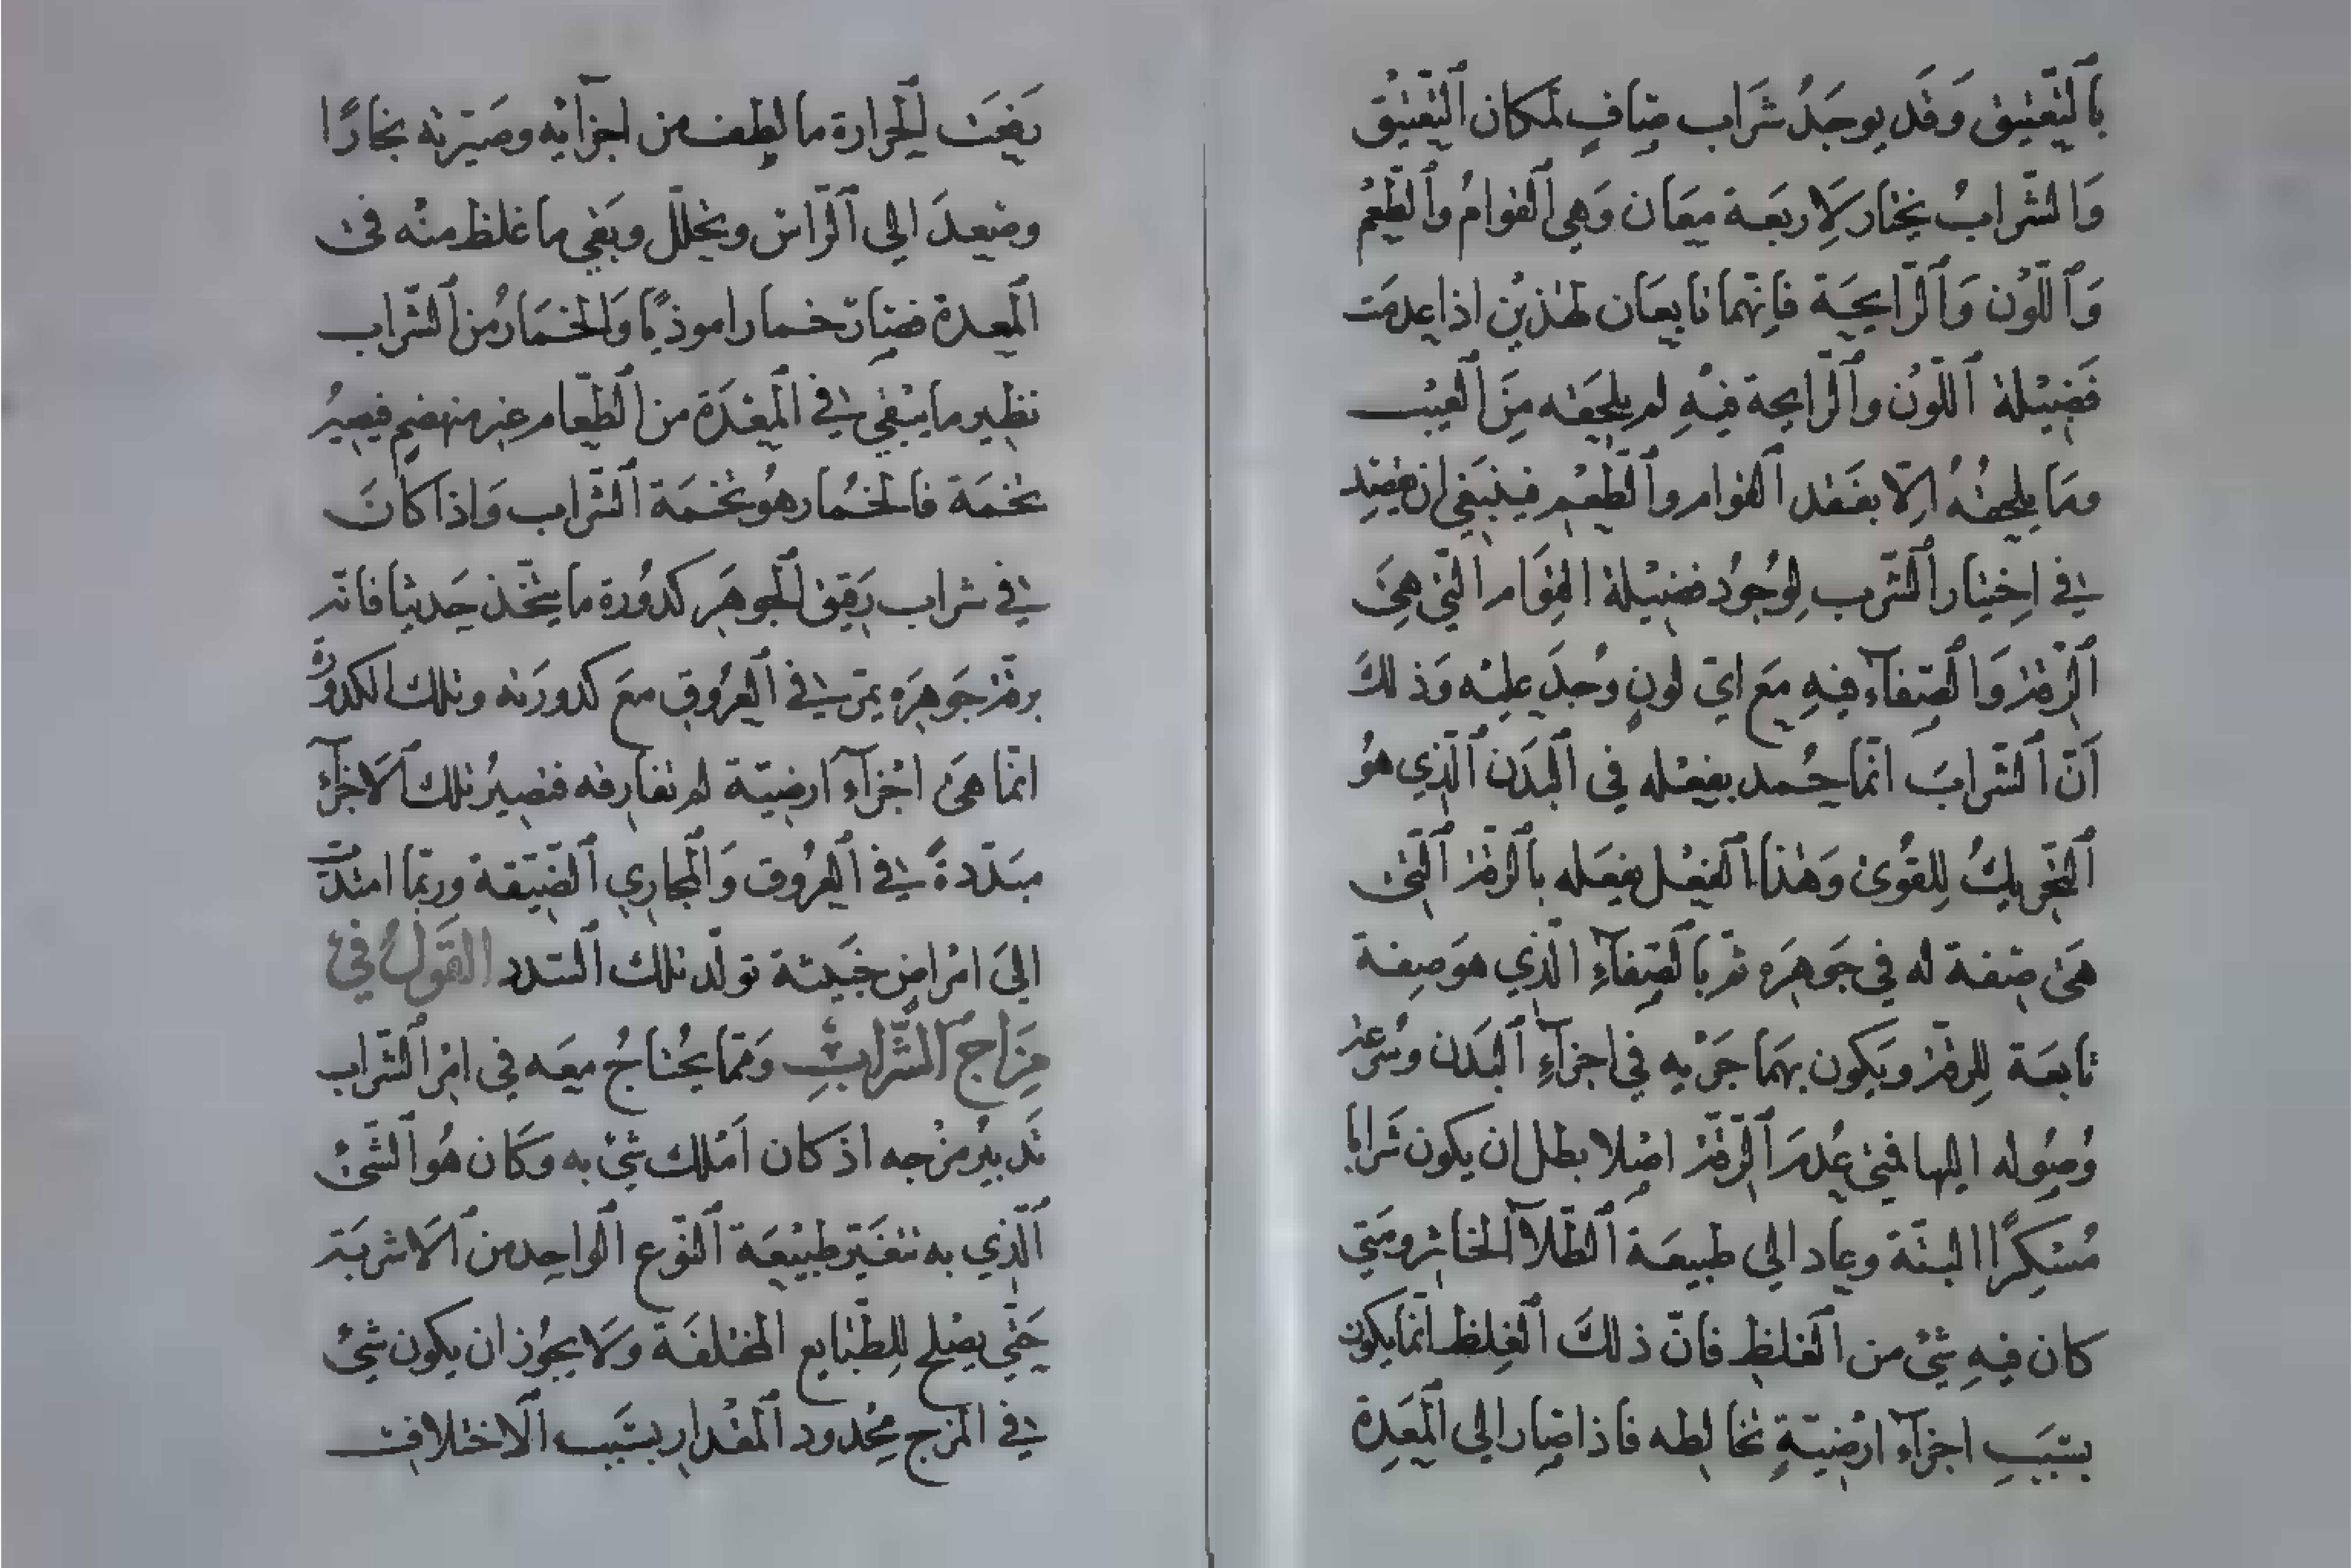 بِالتَّعْتِيق وَقَد يوجَدُ شَرَاب صَافٍ لمَكان التَّعْتِيق
وَالشَّرابُ يختار لِاربَعَة مَعَان وَهي القوامُ والطَّعْمُ
وَاللَّوْن وَالرَّايحَة فَانّهما تابعَان لهٰذيْن اذا عدمَت
فَضيْلة اللّوْن والرّايحة فيْهِ لم يلحَقه مِنَ العَيْب
ومَا يلحقهُ الّا بفَقد القوام والطّعْم فينبَغي ان يقصد
في اختيار الشّرب لوُجوُد فضيْلة القوَام التي هِيَ
الرّقّة وَالصّفآء فيهِ مَع ايّ لونٍ وُجدَ عليْه وَذلكَ
اَنّ الشّرابَ انّما حُمد بفعْله في البدَن الّذي هوُ
التّحْريكُ للِقُوىٰ وَهٰذا الفعْل يفعَله بالرّقّة الّتي
هيَ صفة له في جَوهَره ثم بالصّفآءِ الّذي هوَ صفة
تابعَة لِلرقّة ويَكون بهمَا جَرْيه في اجزآءِ البدَن وسُرعَة
وُصُوله اليها فمتي عُدمَ الرّقّة اصْلا بطل ان يكون شَرابا
مُسْكِرًا البتّة وعاد الي طبيعَة الطّلآ الخاثر ومَتي
كان فيهِ شيْ من الغلظ فانّ ذلكَ الغِلظ انّما يكون
بسَبَبِ اجزآء ارْضيّةٍ تخالطه فاذا صَار الي المَعدَة
نفخَت الحَرارة ما لطف من اجزآيه وصَيّرته بخارًا
وصَعدَ الي الرّاس وتحَللّ وبَقي ما غلظ منْه في
المَعدة فصَارَ خمارا موذيًا وَالخمَارُ من الشّراب
نظير ما يبْقي في المَعْدَة من الطّعام غير منهضم فيصيرُ
تخمَة فالخمُار هوُ تخْمَة الشّراب وَاذا كانَ
في شراب رَقيق الجوهَر كدوُرة ما يتّخذ حَديثا فانّه
برقّة جَوهَره يمرّ في العرُوق معَ كدورَته وتلك الكدورة
انّما هيَ اجْزآء ارضيّة لم تفارقه فتصيرُ تلك الاجزآء
مبدّدةً في العرُوق وَالمجاري الضّيّقة وربّما امتدّت
اليَ امْراض خبَيثة تولّد تلك السّدد القَولُ في
مِزَاج الشَّرابِ وَممّا يحُتاجُ معَه في امْر الشّراب
تَدبيرُ مزْجه اذ كان اَمْلك شيْ به وكَان هُو الشّيْ
الّذي به تتغَيّر طبيْعَة النّوع الواحِد من الاَشربَة
حَتّي يصْلح للِطّبَايع المختلفَة وَلا يجوُز ان يكون شيْ
في المزج محُدود المقْدار بسَبب الاختلاف